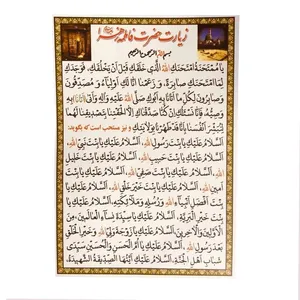 زیارت حضرت فاطمه زهرا
بسم الله الرحمن الرحیم
یا مُمْتَحَنَةُ امْتَحَنَكِ اللهُ الَّذی خَلَقَكِ قَبْلَ اَنْ یَخْلُقَكِ، فَوَجَدَكِ
لِمَا امْتَحَنَكِ صابِرَةً، وَ زَعَمْنا اَنّا لَكِ اَوْلِیآءُ وَ مُصَدِّقُونَ
وَ صابِرُونَ لِكُلِّ ما اَتانا بِهِ اَبُوكِ صَلَّی اللهُ عَلَیْهِ وَ آلِهِ وَ اَتانا بِهِ
وَصِیُّهُ، فَاِنّا نَسْئَلُكِ اِنْ كُنّا صَدَّقْناكِ اِلّا اَلْحَقْتِنا بِتَصْدیقِنا لَهُما
لِنُبَشِّرَ اَنْفُسَنا بِاَنّا قَدْ طَهُرْنا بِوِلایَتِكِ. و نیز مستحب است که بگوید:
اَلسَّلامُ عَلَیْكِ یا بِنْتَ رَسُولِ اللهِ، اَلسَّلامُ عَلَیْكِ یا بِنْتَ نَبِیِّ
اللهِ، اَلسَّلامُ عَلَیْكِ یا بِنْتَ حَبیبِ اللهِ، اَلسَّلامُ عَلَیْكِ یا بِنْتَ
خَلیلِ اللهِ، اَلسَّلامُ عَلَیْكِ یا بِنْتَ صَفِیِّ اللهِ، اَلسَّلامُ عَلَیْكِ یا بِنْتَ
اَمینِ اللهِ، اَلسَّلامُ عَلَیْكِ یا بِنْتَ خَیْرِ خَلْقِ اللهِ، اَلسَّلامُ عَلَیْكِ یا
بِنْتَ اَفْضَلِ اَنْبِیآءِ اللهِ وَ رُسُلِهِ وَ مَلائِكَتِهِ، اَلسَّلامُ عَلَیْكِ یا بِنْتَ
خَیْرِ الْبَرِیَّةِ، اَلسَّلامُ عَلَیْكِ یا سَیِّدَةَ نِسآءِ الْعالَمینَ، مِنَ
الْاَوَّلینَ وَ الْآخِرینَ، اَلسَّلامُ عَلَیْكِ یا زَوْجَةَ وَلِیِّ اللهِ وَ خَیْرِ الْخَلْقِ
بَعْدَ رَسُولِ اللهِ، اَلسَّلامُ عَلَیْكِ یا اُمَّ الْحَسَنِ وَ الْحُسَیْنِ سَیِّدَیْ
شَبابِ اَهْلِ الْجَنَّةِ، اَلسَّلامُ عَلَیْكِ اَیَّتُهَا الصِّدّیقَةُ الشَّهیدَةُ،